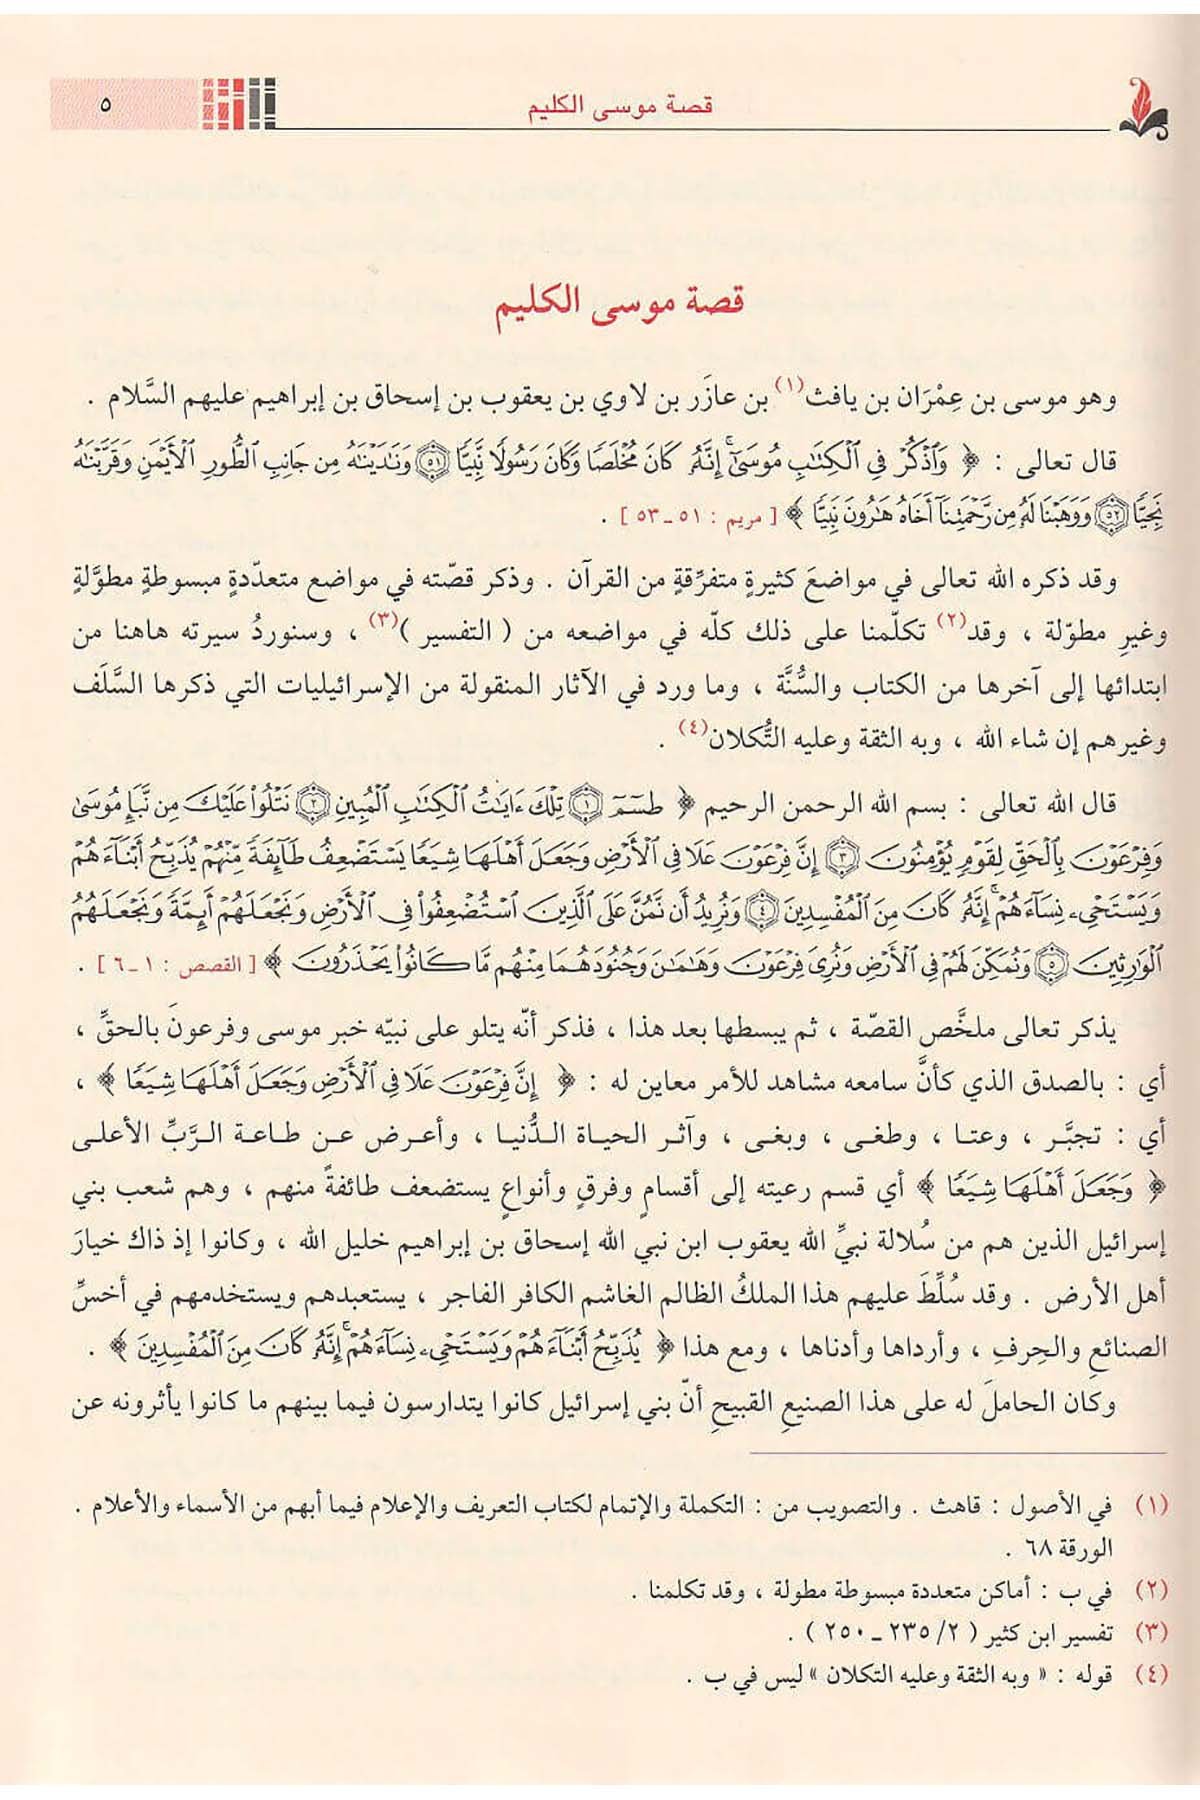 قصة موسى الكليم
٥
قصة موسى الكليم
وهو موسى بن عِمْرَان بن يافث(١) بن عازَر بن لاوي بن يعقوب بن إسحاق بن إبراهيم عليهم السَّلام .
قال تعالى : ﴿ وَٱذْكُرْ فِى ٱلْكِتَٰبِ مُوسَىٰٓ ۚ إِنَّهُۥ كَانَ مُخْلَصًا وَكَانَ رَسُولًا نَّبِيًّا ۝٥١ وَنَٰدَيْنَٰهُ مِن جَانِبِ ٱلطُّورِ ٱلْأَيْمَنِ وَقَرَّبْنَٰهُ
نَجِيًّا ۝٥٢ وَوَهَبْنَا لَهُۥ مِن رَّحْمَتِنَآ أَخَاهُ هَٰرُونَ نَبِيًّا ﴾ [ مريم : ٥١ ـ ٥٣ ] .
وقد ذكره الله تعالى في مواضعَ كثيرةٍ متفرِّقةٍ من القرآن . وذكر قصّته في مواضع متعدّدةٍ مبسوطةٍ مطوَّلةٍ
وغيرِ مطوّلة ، وقد(٢) تكلّمنا على ذلك كلّه في مواضعه من ( التفسير )(٣) ، وسنوردُ سيرته هاهنا من
ابتدائها إلى آخرها من الكتاب والسُّنَّة ، وما ورد في الآثار المنقولة من الإسرائيليات التي ذكرها السَّلَف
وغيرهم إن شاء الله ، وبه الثقة وعليه التُّكلان(٤) .
قال الله تعالى : بسم الله الرحمن الرحيم ﴿ طسٓمٓ ۝١ تِلْكَ ءَايَٰتُ ٱلْكِتَٰبِ ٱلْمُبِينِ ۝٢ نَتْلُوا۟ عَلَيْكَ مِن نَّبَإِ مُوسَىٰ
وَفِرْعَوْنَ بِٱلْحَقِّ لِقَوْمٍ يُؤْمِنُونَ ۝٣ إِنَّ فِرْعَوْنَ عَلَا فِى ٱلْأَرْضِ وَجَعَلَ أَهْلَهَا شِيَعًا يَسْتَضْعِفُ طَآئِفَةً مِّنْهُمْ يُذَبِّحُ أَبْنَآءَهُمْ
وَيَسْتَحْىِۦ نِسَآءَهُمْ ۚ إِنَّهُۥ كَانَ مِنَ ٱلْمُفْسِدِينَ ۝٤ وَنُرِيدُ أَن نَّمُنَّ عَلَى ٱلَّذِينَ ٱسْتُضْعِفُوا۟ فِى ٱلْأَرْضِ وَنَجْعَلَهُمْ أَئِمَّةً وَنَجْعَلَهُمُ
ٱلْوَٰرِثِينَ ۝٥ وَنُمَكِّنَ لَهُمْ فِى ٱلْأَرْضِ وَنُرِىَ فِرْعَوْنَ وَهَٰمَٰنَ وَجُنُودَهُمَا مِنْهُم مَّا كَانُوا۟ يَحْذَرُونَ ﴾ [ القصص : ١ ـ ٦ ] .
يذكر تعالى ملخَّص القصّة ، ثم يبسطها بعد هذا ، فذكر أنّه يتلو على نبيّه خبر موسى وفرعونَ بالحقِّ ،
أي : بالصدق الذي كأنَّ سامعه مشاهد للأمر معاين له : ﴿ إِنَّ فِرْعَوْنَ عَلَا فِى ٱلْأَرْضِ وَجَعَلَ أَهْلَهَا شِيَعًا ﴾ ،
أي : تجبَّر ، وعتا ، وطغى ، وبغى ، وآثر الحياة الدُّنيا ، وأعرض عن طاعة الرَّبِّ الأعلى
﴿ وَجَعَلَ أَهْلَهَا شِيَعًا ﴾ أي قسم رعيته إلى أقسامٍ وفرقٍ وأنواعٍ يستضعف طائفةً منهم ، وهم شعب بني
إسرائيل الذين هم من سُلالة نبيِّ الله يعقوب ابن نبي الله إسحاق بن إبراهيم خليل الله ، وكانوا إذ ذاك خيارَ
أهل الأرض . وقد سُلِّطَ عليهم هذا الملكُ الظالم الغاشم الكافر الفاجر ، يستعبدهم ويستخدمهم في أخسِّ
الصنائعِ والحِرفِ ، وأرداها وأدناها ، ومع هذا ﴿ يُذَبِّحُ أَبْنَآءَهُمْ وَيَسْتَحْىِۦ نِسَآءَهُمْ ۚ إِنَّهُۥ كَانَ مِنَ ٱلْمُفْسِدِينَ ﴾ .
وكان الحاملَ له على هذا الصنيعِ القبيحِ أنّ بني إسرائيل كانوا يتدارسون فيما بينهم ما كانوا يأثرونه عن
(١) في الأصول : قاهث . والتصويب من : التكملة والإتمام لكتاب التعريف والإعلام فيما أبهم من الأسماء والأعلام .
الورقة ٦٨ .
(٢) في ب : أماكن متعددة مبسوطة مطولة ، وقد تكلمنا .
(٣) تفسير ابن كثير ( ٢/ ٢٣٥ ـ ٢٥٠ ) .
(٤) قوله : « وبه الثقة وعليه التكلان » ليس في ب .